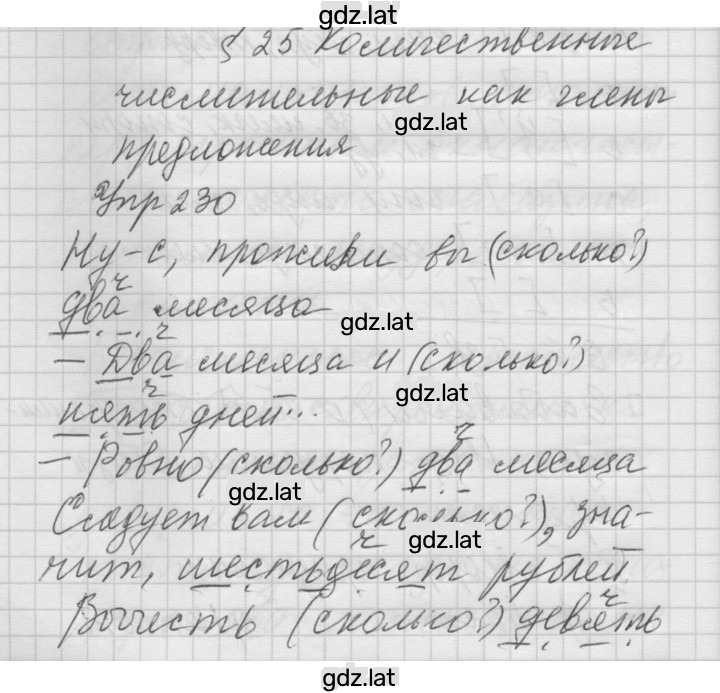 gdz.lat
§ 25 Количественные
числительные как члены
gdz.lat
предложения
Упр 230
Ну-с, прожили вы (сколько?)
ч
два месяца
gdz.lat
ч
– Два месяца и (сколько?)
ч
gdz.lat
пять дней...
ч
– Ровно (сколько?) два месяца
gdz.lat
Следует вам (сколько?), зна-
ч
gdz.lat
чит, шестьдесят рублей.
ч
Вычесть (сколько?) девять
gdz.lat